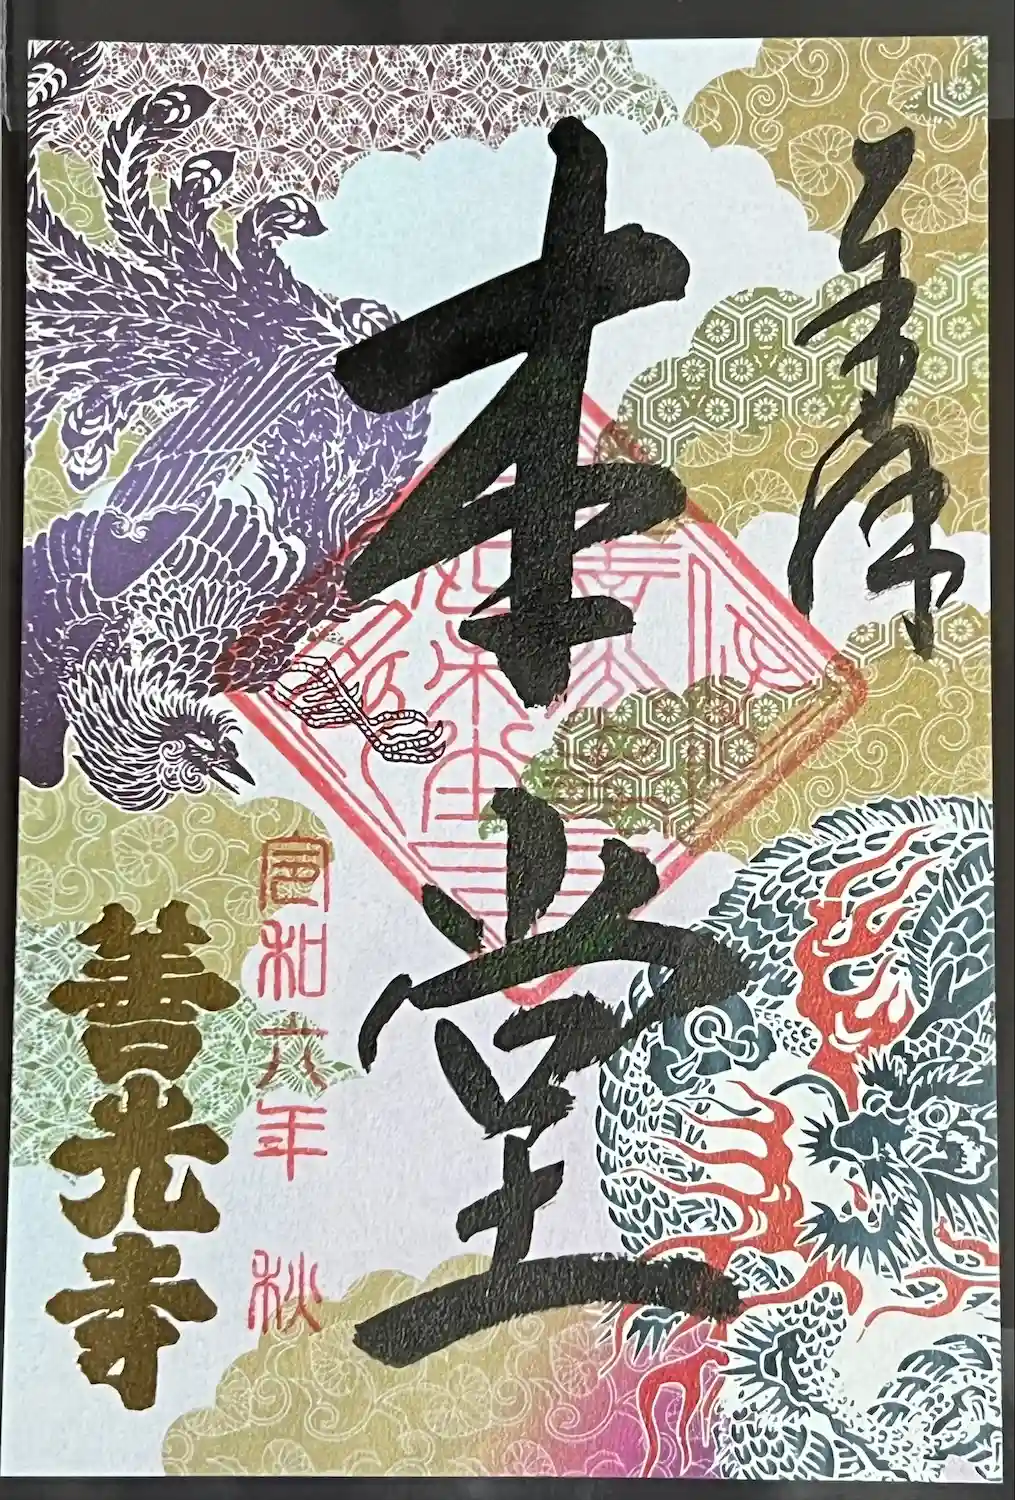 奉拝
本堂
令和六年 秋
善光寺